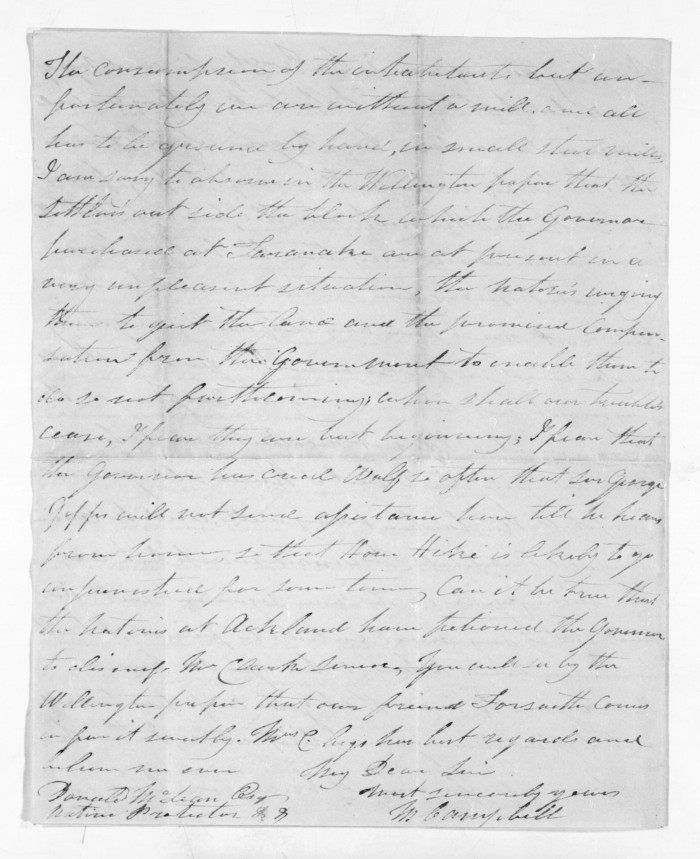 The consumption of the inhabitants but un-
fortunately we are without a mill, and all
has to be ground by hand, in small steel mills.
I am sorry to observe in the Wellington paper that the
settlers out side the block which the Governor
purchased at Taranake are at present in a
very unpleasant situation, the natives urging
them to quit the land and the promised Compen-
sation from the Government to enable them to
do so not forthcoming; when shall our troubles
cease, I fear they are but beginning; I fear that
the Governor has cried Wolf so often that Sir George
Gipps will not send assistance here till he hears
from home, so that Hone Hike is likely to go
unpunished for some time, Can it be true that
the natives at Ackland have petioned the Governor
to dismiss Mr Clarke Senior, You will see by the
Wellington paper that our friend Forsaith Comes
in for it smartly. Mrs C. begs her best regards and
believe me ever My Dear Sir
most sincerely yours
Donald McLean Esqr M. Campbell
Native Protector &c &c